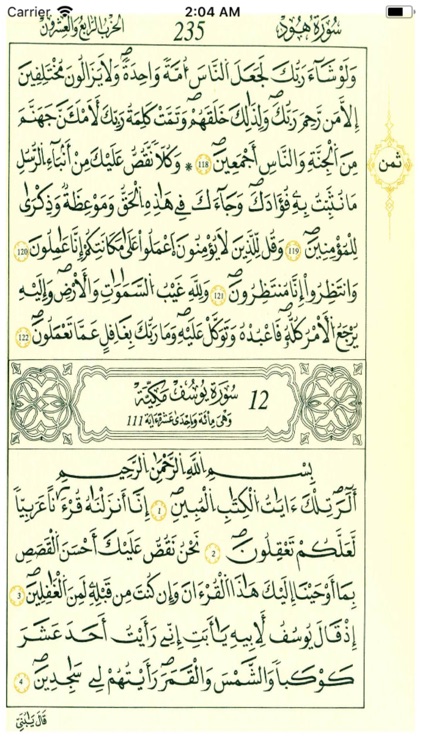 Carrier 2:04 AM
الحزب الرابع والعشرون 235 سورة هود
وَلَوْ شَآءَ رَبُّكَ لَجَعَلَ اَ۬لنَّاسَ أُمَّةٗ وَٰحِدَةٗۖ وَلَا يَزَالُونَ مُخْتَلِفِينَ
إِلَّا مَن رَّحِمَ رَبُّكَۖ وَلِذَٰلِكَ خَلَقَهُمْۖ وَتَمَّتْ كَلِمَةُ رَبِّكَ لَأَمْلَأَنَّ جَهَنَّمَ
مِنَ اَ۬لْجِنَّةِ وَالنَّاسِ أَجْمَعِينَۖ 118 * وَكُلّاٗ نَّقُصُّ عَلَيْكَ مِنْ أَنۢبَآءِ اِ۬لرُّسُلِ
ثمن
مَا نُثَبِّتُ بِهِۦ فُؤَادَكَۖ وَجَآءَكَ فِے هَٰذِهِ اِ۬لْحَقُّ وَمَوْعِظَةٞ وَذِكْر۪ىٰ
لِلْمُؤْمِنِينَۖ 119 وَقُل لِّلذِينَ لَا يُؤْمِنُونَ اَ۪عْمَلُواْ عَلَىٰ مَكَانَتِكُمُۥٓ إِنَّا عَٰمِلُونَ 120
وَانتَظِرُوٓاْ إِنَّا مُنتَظِرُونَۖ 121 وَلِلهِ غَيْبُ اُ۬لسَّمَٰوَٰتِ وَالْأَرْضِۖ وَإِلَيْهِ
يَرْجِعُ اُ۬لْأَمْرُ كُلُّهُۥۖ فَاعْبُدْهُ وَتَوَكَّلْ عَلَيْهِۖ وَمَا رَبُّكَ بِغَٰفِلٍ عَمَّا تَعْمَلُونَۖ 122
12 سورة يوسف مكية
وهي مائة وإحدى عشرة ءاية 111
بِسْمِ اِ۬للَّهِ اِ۬لرَّحْمَٰنِ اِ۬لرَّحِيمِ
أَلَٓر۪ۖ تِلْكَ ءَايَٰتُ اُ۬لْكِتَٰبِ اِ۬لْمُبِينِۖ 1 إِنَّآ أَنزَلْنَٰهُ قُرْءَٰناً عَرَبِيّاٗ
لَّعَلَّكُمْ تَعْقِلُونَۖ 2 نَحْنُ نَقُصُّ عَلَيْكَ أَحْسَنَ اَ۬لْقَصَصِ
بِمَآ أَوْحَيْنَآ إِلَيْكَ هَٰذَا اَ۬لْقُرْءَانَ وَإِن كُنتَ مِن قَبْلِهِۦ لَمِنَ اَ۬لْغَٰفِلِينَۖ 3
إِذْ قَالَ يُوسُفُ لِأَبِيهِ يَٰٓأَبَتِ إِنِّے رَأَيْتُ أَحَدَ عَشَرَ
كَوْكَباٗ وَالشَّمْسَ وَالْقَمَرَۖ رَأَيْتُهُمْ لِے سَٰجِدِينَۖ 4
قَالَ يَٰبُنَيِّ